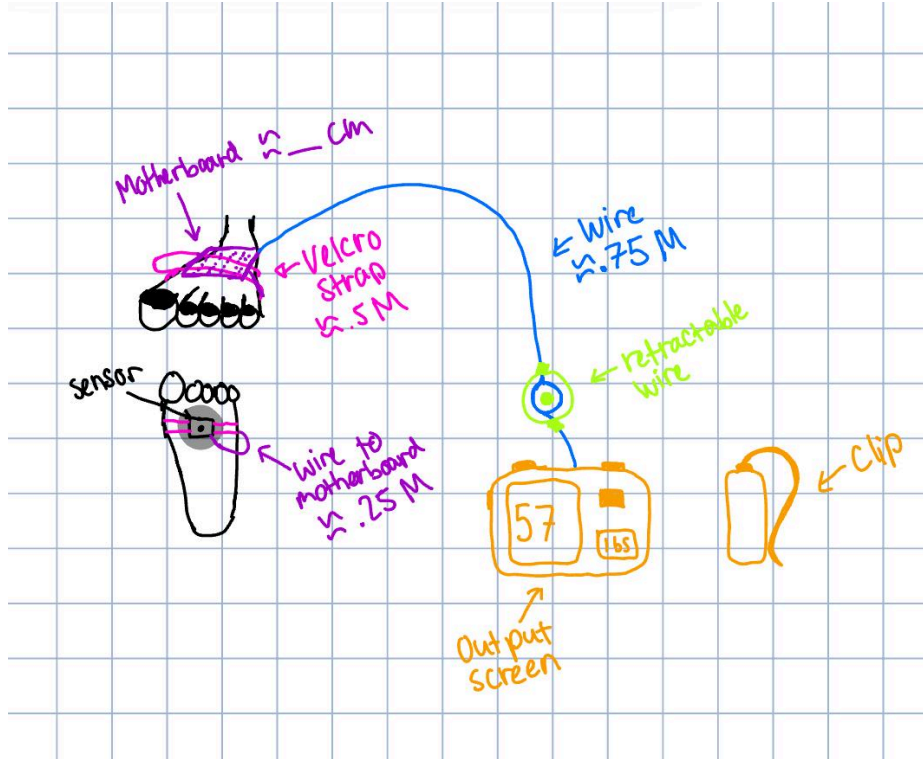 Motherboard ≈ __ cm
Velcro
strap
≈ .5 M
wire
≈ .75 M
retractable
wire
sensor
wire to
motherboard
≈ .25 M
57
lbs
Clip
Output
screen